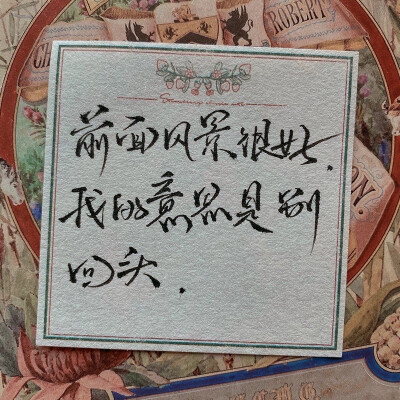 ROBERT
前面风景很好.
我的意思是别
回头.